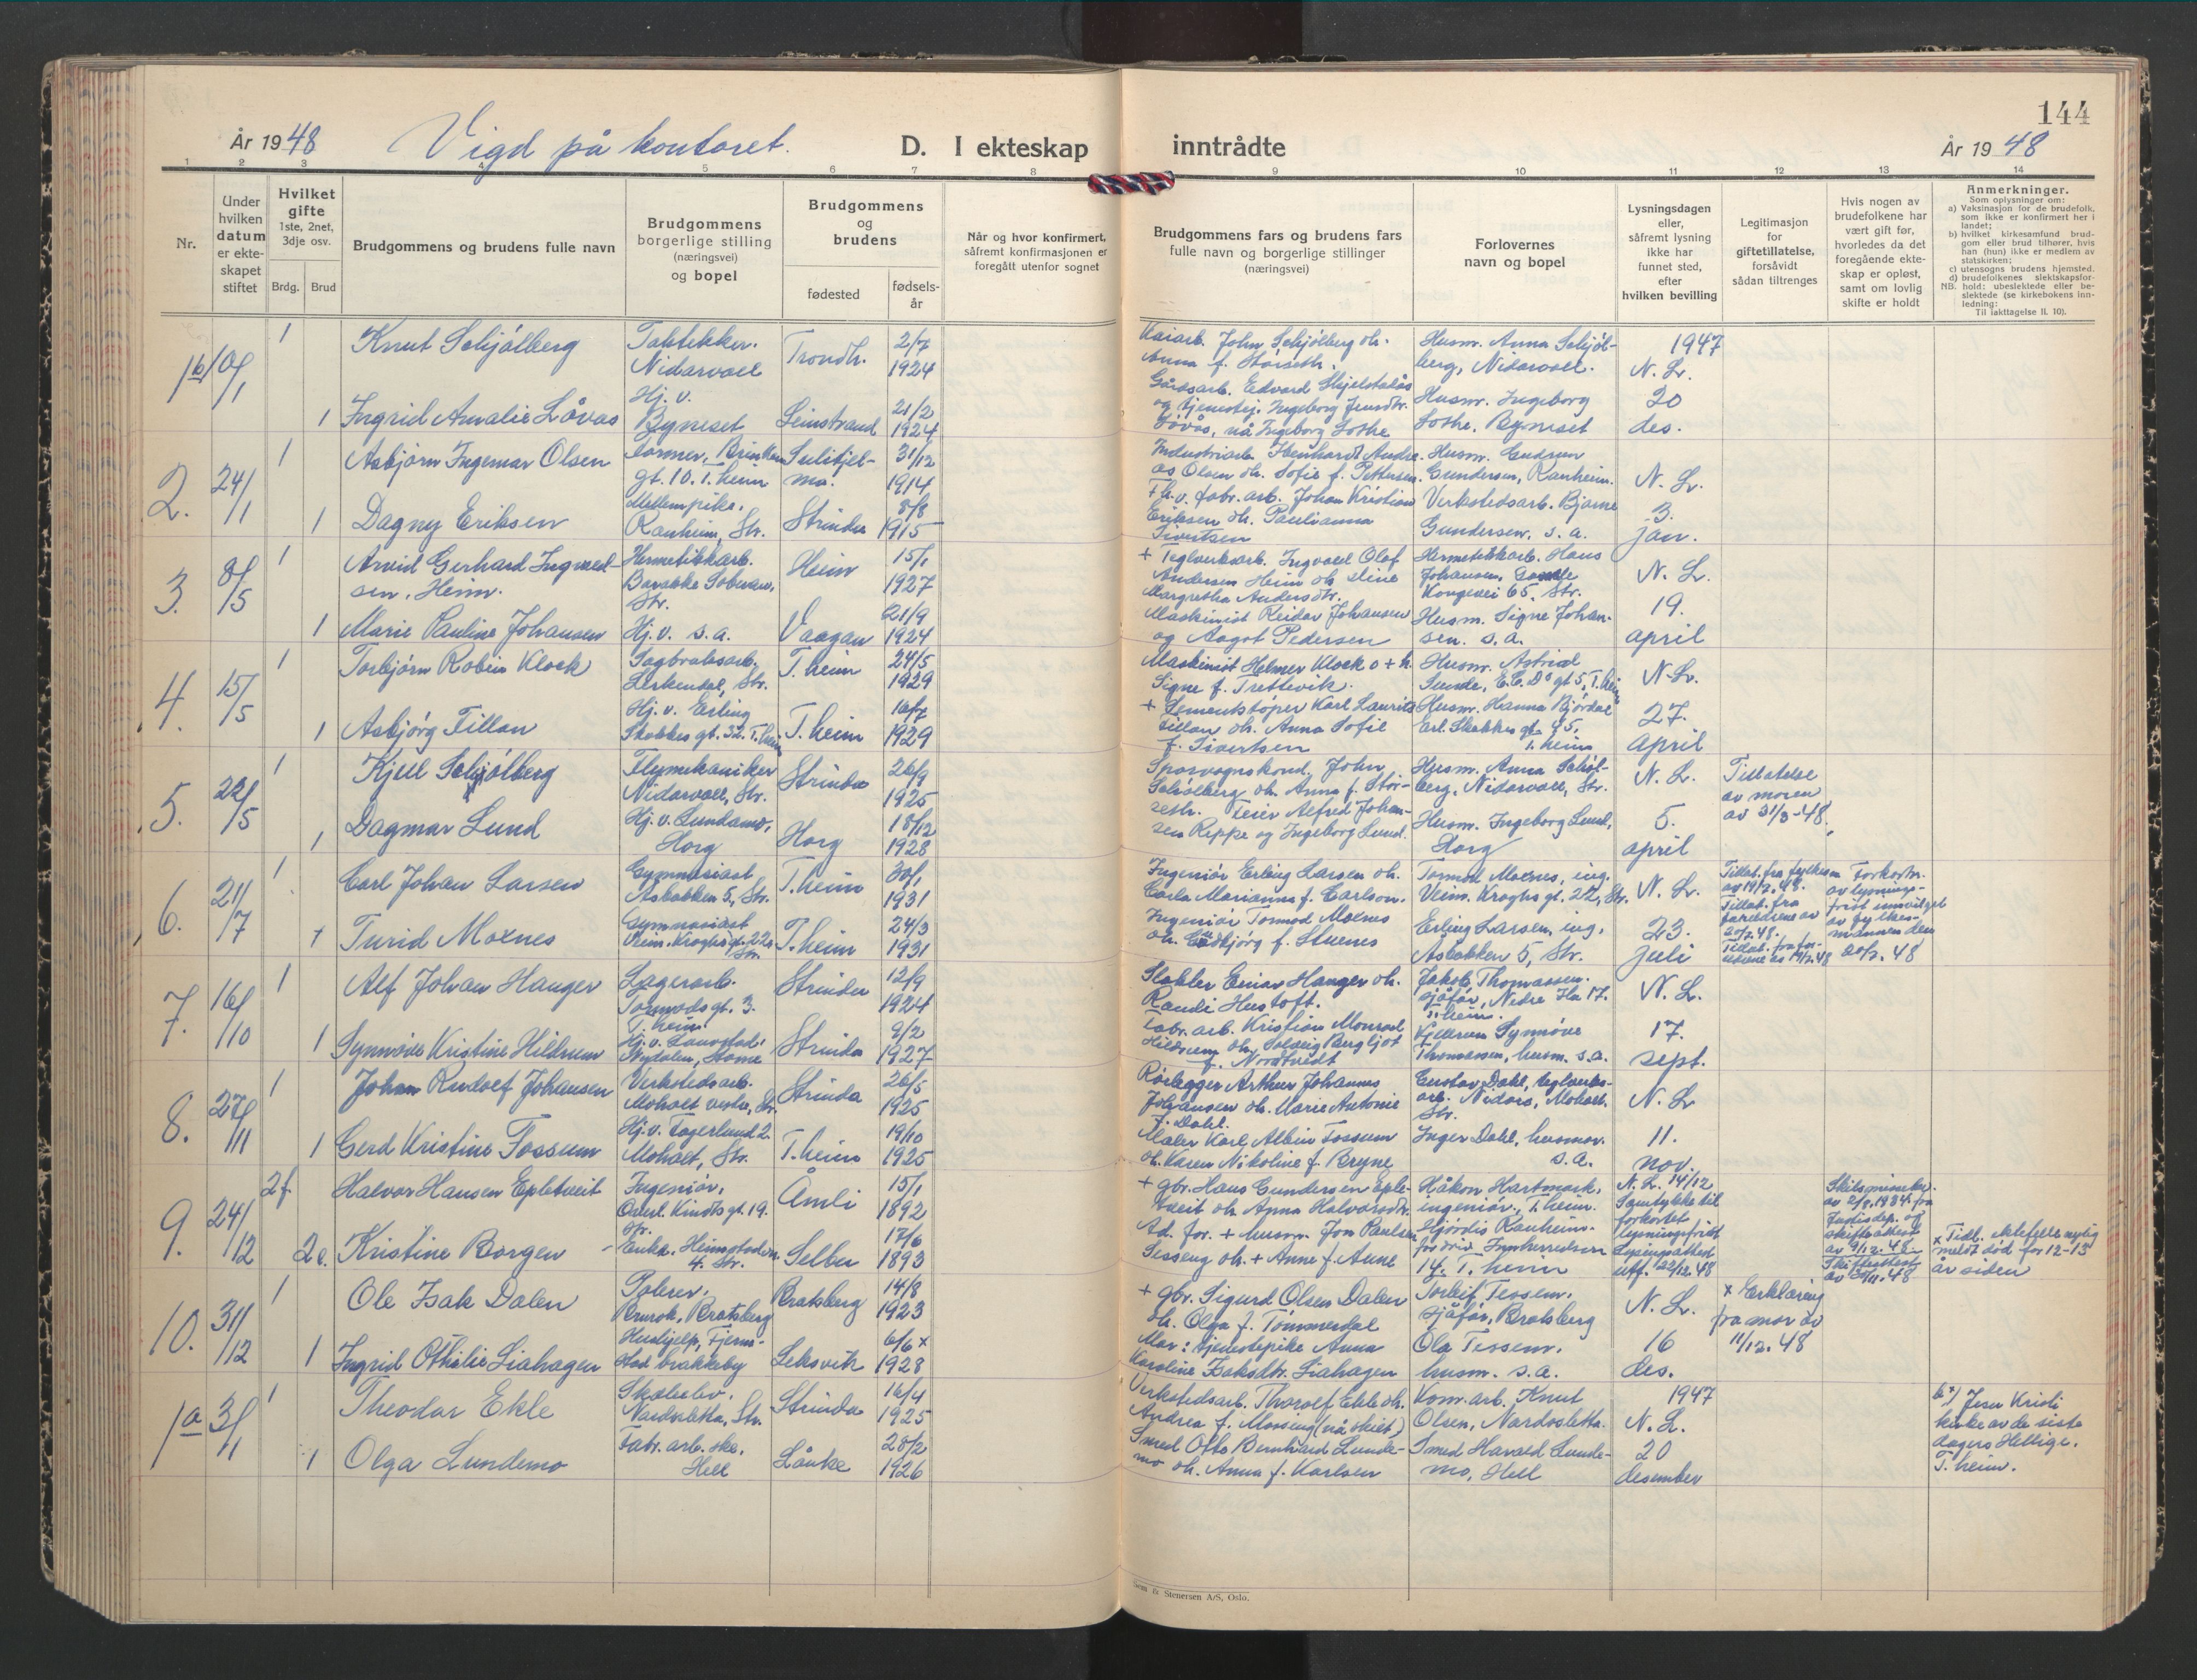 144
År 1948 Vigd på kontoret. D. I ekteskap inntrådte År 1948
1 2 3 4 5 6 7 8 9 10 11 12 13 14
Nr.
Under hvilken datum er ekteskapet stiftet
Hvilket gifte 1ste, 2net, 3dje osv.
Brdg. Brud
Brudgommens og brudens fulle navn
Brudgommens borgerlige stilling (næringsvei) og bopel
Brudgommens og brudens
fødested
fødsels-år
Når og hvor konfirmert, såfremt konfirmasjonen er foregått utenfor sognet
Brudgommens fars og brudens fars fulle navn og borgerlige stillinger (næringsvei)
Forlovernes navn og bopel
Lysningsdagen eller, såfremt lysning ikke har funnet sted, efter hvilken bevilling
Legitimasjon for giftetillatelse, forsåvidt sådan tiltrenges
Hvis nogen av brudefolkene har vært gift før, hvorledes da det foregående ekteskap er opløst, samt om lovlig skifte er holdt
Anmerkninger.
Som oplysninger om:
a) Vaksinasjon for de brudefolk, som ikke er konfirmert her i landet;
b) hvilket kirkesamfund brudgom eller brud tilhører, hvis han (hun) ikke er medlem av statskirken;
c) utensogns brudens hjemsted.
d) brudefolkenes slektskapsforhold: ubeslektede eller beslektede (se kirkebokens innledning:
NB.
Til iakttagelse II. 10).
1b 10/1 1 Knut Schjølberg
Taktekker. Nidarvoll
Trondh.
2/7 1924
Kaiarb. John Schjølberg oh. Anna f. Størseth.
Husm. Anna Schjølberg, Nidarvoll.
1947 N. L. 20 des.
1 Ingrid Amalie Låvås
Hj. v. Byneset
Leinstrand
21/2 1924
Gårdsarb. Edvard Skjelstadås og tjenestepj. Ingeborg Jensdtr. Låvås, nå Ingeborg Sothe
Husm. Ingeborg Sothe, Byneset
2. 24/1 1 Asbjørn Ingemar Olsen
Former, gt. 10. T.heim
Sulitjelma.
31/12 1914
Industriarb. Ebenhardt Andreas Olsen oh. Sofie f. Pettersen.
Husm. Gudrun Gundersen, Ranheim.
N. L. 3. jan.
1 Dagny Eriksen
Mellempike. Ranheim, Str.
Strinda
8/8 1915
+ fabr. arb. Johan Kristian Eriksen oh. Paulianna Sivertsen
Verkstedsarb. Bjarne Gundersen, s. a.
3. 8/5 1 Arvid Gerhard Ingvaldsen. Heim.
Hermetikkarb. Barakke Str.
Heim
15/1 1927
+ Teglverksarb. Ingvald Olaf Andersen Heim oh Eline Margretha Andersdtr.
Hermetikkarb. Hans Johansen, Gamle Kongevei 65, Str.
N. L. 19. april
1 Marie Pauline Johansen
Hj. v. s. a.
Vaagan
21/9 1924
Maskinist Reidar Johansen og Aagot Pedersen
Husm. Signe Johansen. s. a.
4. 15/5 1 Torbjørn Robein Klock
Sagbruksarb. Lerkendal, Str.
T.heim
24/5 1929
Maskinist Helmer Klock o + h. Signe f. Trettevik.
Husm. Astrid Sunde, E.C. D⁸ gt 5, T.heim
N. L. 27. april
1 Asbjørg Tillan
Hj. v. Erling Skakkes gt. 32. T.heim
T.heim
16/7 1929
+ Sementstøper Karl Laurits Tillan oh. Anna Sofie f. Sivertsen
Husm. Hanna Bjørdal Erl. Skakkes gt. 45, T. heim
5. 22/5 1 Kjell Schjølberg
Flymekaniker Nidarvoll, Str.
Strinda
26/9 1925
Sporvognskond. John Schjølberg oh. Anna f. Størseth.
Husm. Anna Schjølberg, Nidarvoll, Str.
N. L. 5. april
Tillatelse av moren av 31/3-48.
1 Dagmar Lund
Hj. v. Lundamo, Horg
Horg
18/12 1928
Feier Alfred Johansen Reppe og Ingeborg Lund.
Husm. Ingeborg Lund, Horg
6. 21/7 1 Carl Johan Larsen
Gymnasiast Asbakken 5, Str.
T.heim
30/1 1931
Ingeniør Erling Larsen oh. Carla Marianne f. Carlson.
Tormod Moxnes, ing. Veim. Kroghs gt. 22, Str.
N. L. 23. juli
Tillat. fra fylkesm av 19/7. 48. Tillat. fra foreldrene av 20/7. 48.
Forkortn. av lysningsfrist innvilget av fylkesmannen den 20/7. 48
+ Turid Moxnes
Gymnasiast Veim. Kroghs gt. 22 Str.
T.heim
24/3 1931
Ingeniør Tormod Moxnes oh. Gudbjørg f. Stuenes
Erling Larsen, ing. Asbakken 5, Str.
7. 16/10 1 Alf Johan Hanger
Lagerarb. Tormods gt. 3. T.heim
Strinda
12/9 1924
Stabler Einar Hanger oh. Randi Hustoft.
Jakob Thomassen. sjåfør, Nedre Ila 17. T.heim.
N. L. 17. sept.
1 Synnøve Kristine Hildrum
Strinda
9/2 1927
Fabr. arb. Kristian Monrad Hildrum oh. Solveig Bergljot f. Nordtvedt
Synnøve Thomassen, husm. s. a.
8. 27/11 1 Johan Rudolf Johansen
Verkstedsarb. Moholt vestre, Str.
Strinda
26/5 1925
Rørlegger Arthur Johannes Johansen oh. Marie Antonie f. Dahl.
Gustav Dahl, teglverksarb. Nidarø, Moholt. Str.
N. L. 11. nov.
1 Gerd Kristine Fossum
Hj. v. Fagerlund 2. Moholt, Str.
T.heim
19/10 1925
Maler Karl Albin Fossum oh. Karen Nikoline f. Bryne
Inger Dahl, husmor. s. a.
9. 24/12 2f. Halvor Hansen Epletveit
Ingeniør, Overl. Kindts gt. 19. Str.
Åmli
15/1 1892
+ gbr. Hans Gundersen Epletveit oh Anna Halvorsdtr.
Håkon Hartmark, ingeniør. T.heim.
N. L. 14/12 Samtykke til forkortet lysningsfrist Lysingsattest utf. 22/12. 48
2 e. Kristine Borgen
Enke. 4. Str.
Selbu
17/6 1893
Ad. for. + husm. Jon Paulsen Sesseng oh. + Anne f. Aune
Hjørdis Ranheim. Innherredsvn 14. T. heim
x Tidl. ektefelle nylig meldt død for 12-13 år siden
10. 31/12 1 Ole Isak Dalen
Polerer. Brurok, Bratsberg
Bratsberg
14/8 1923
+ gbr. Sigurd Olsen Dalen oh. Olga f. Tømmerdal
Torleif Tessem. sjåfør, Bratsberg
N. L. 16 des.
x Erklæring fra mor av 11/12. 48
1 Ingrid Othilie Liahagen
Hushjelp, brakkeby
Leksvik
6/6 x 1928
Mor: tjenestepike Anna Karoline Isaksdtr. Liahagen
Ola Tessem. husm. s. a.
1a 3/1 1 Theodor Ekle
Skoleelev. Nardosletta, Str.
Strinda
16/4 1925
Verkstedsarb. Thorolf Ekle oh. Andrea f. Morsing (nå skilt)
Kom. arb. Knut Olsen, Nardosletta.
1947 N. L. 20 desember
b x) Jesu Kristi kirke av de siste dagers Hellige. T. heim.
1 Olga Lundemo
Fabr. arb. ske. Hell
Lånke
28/2 1926
Smed Otto Bernhard Lundemo oh. Anna f. Karlsen
Smed Harald Lundemo, Hell
Sem & Stenersen A/S, Oslo.